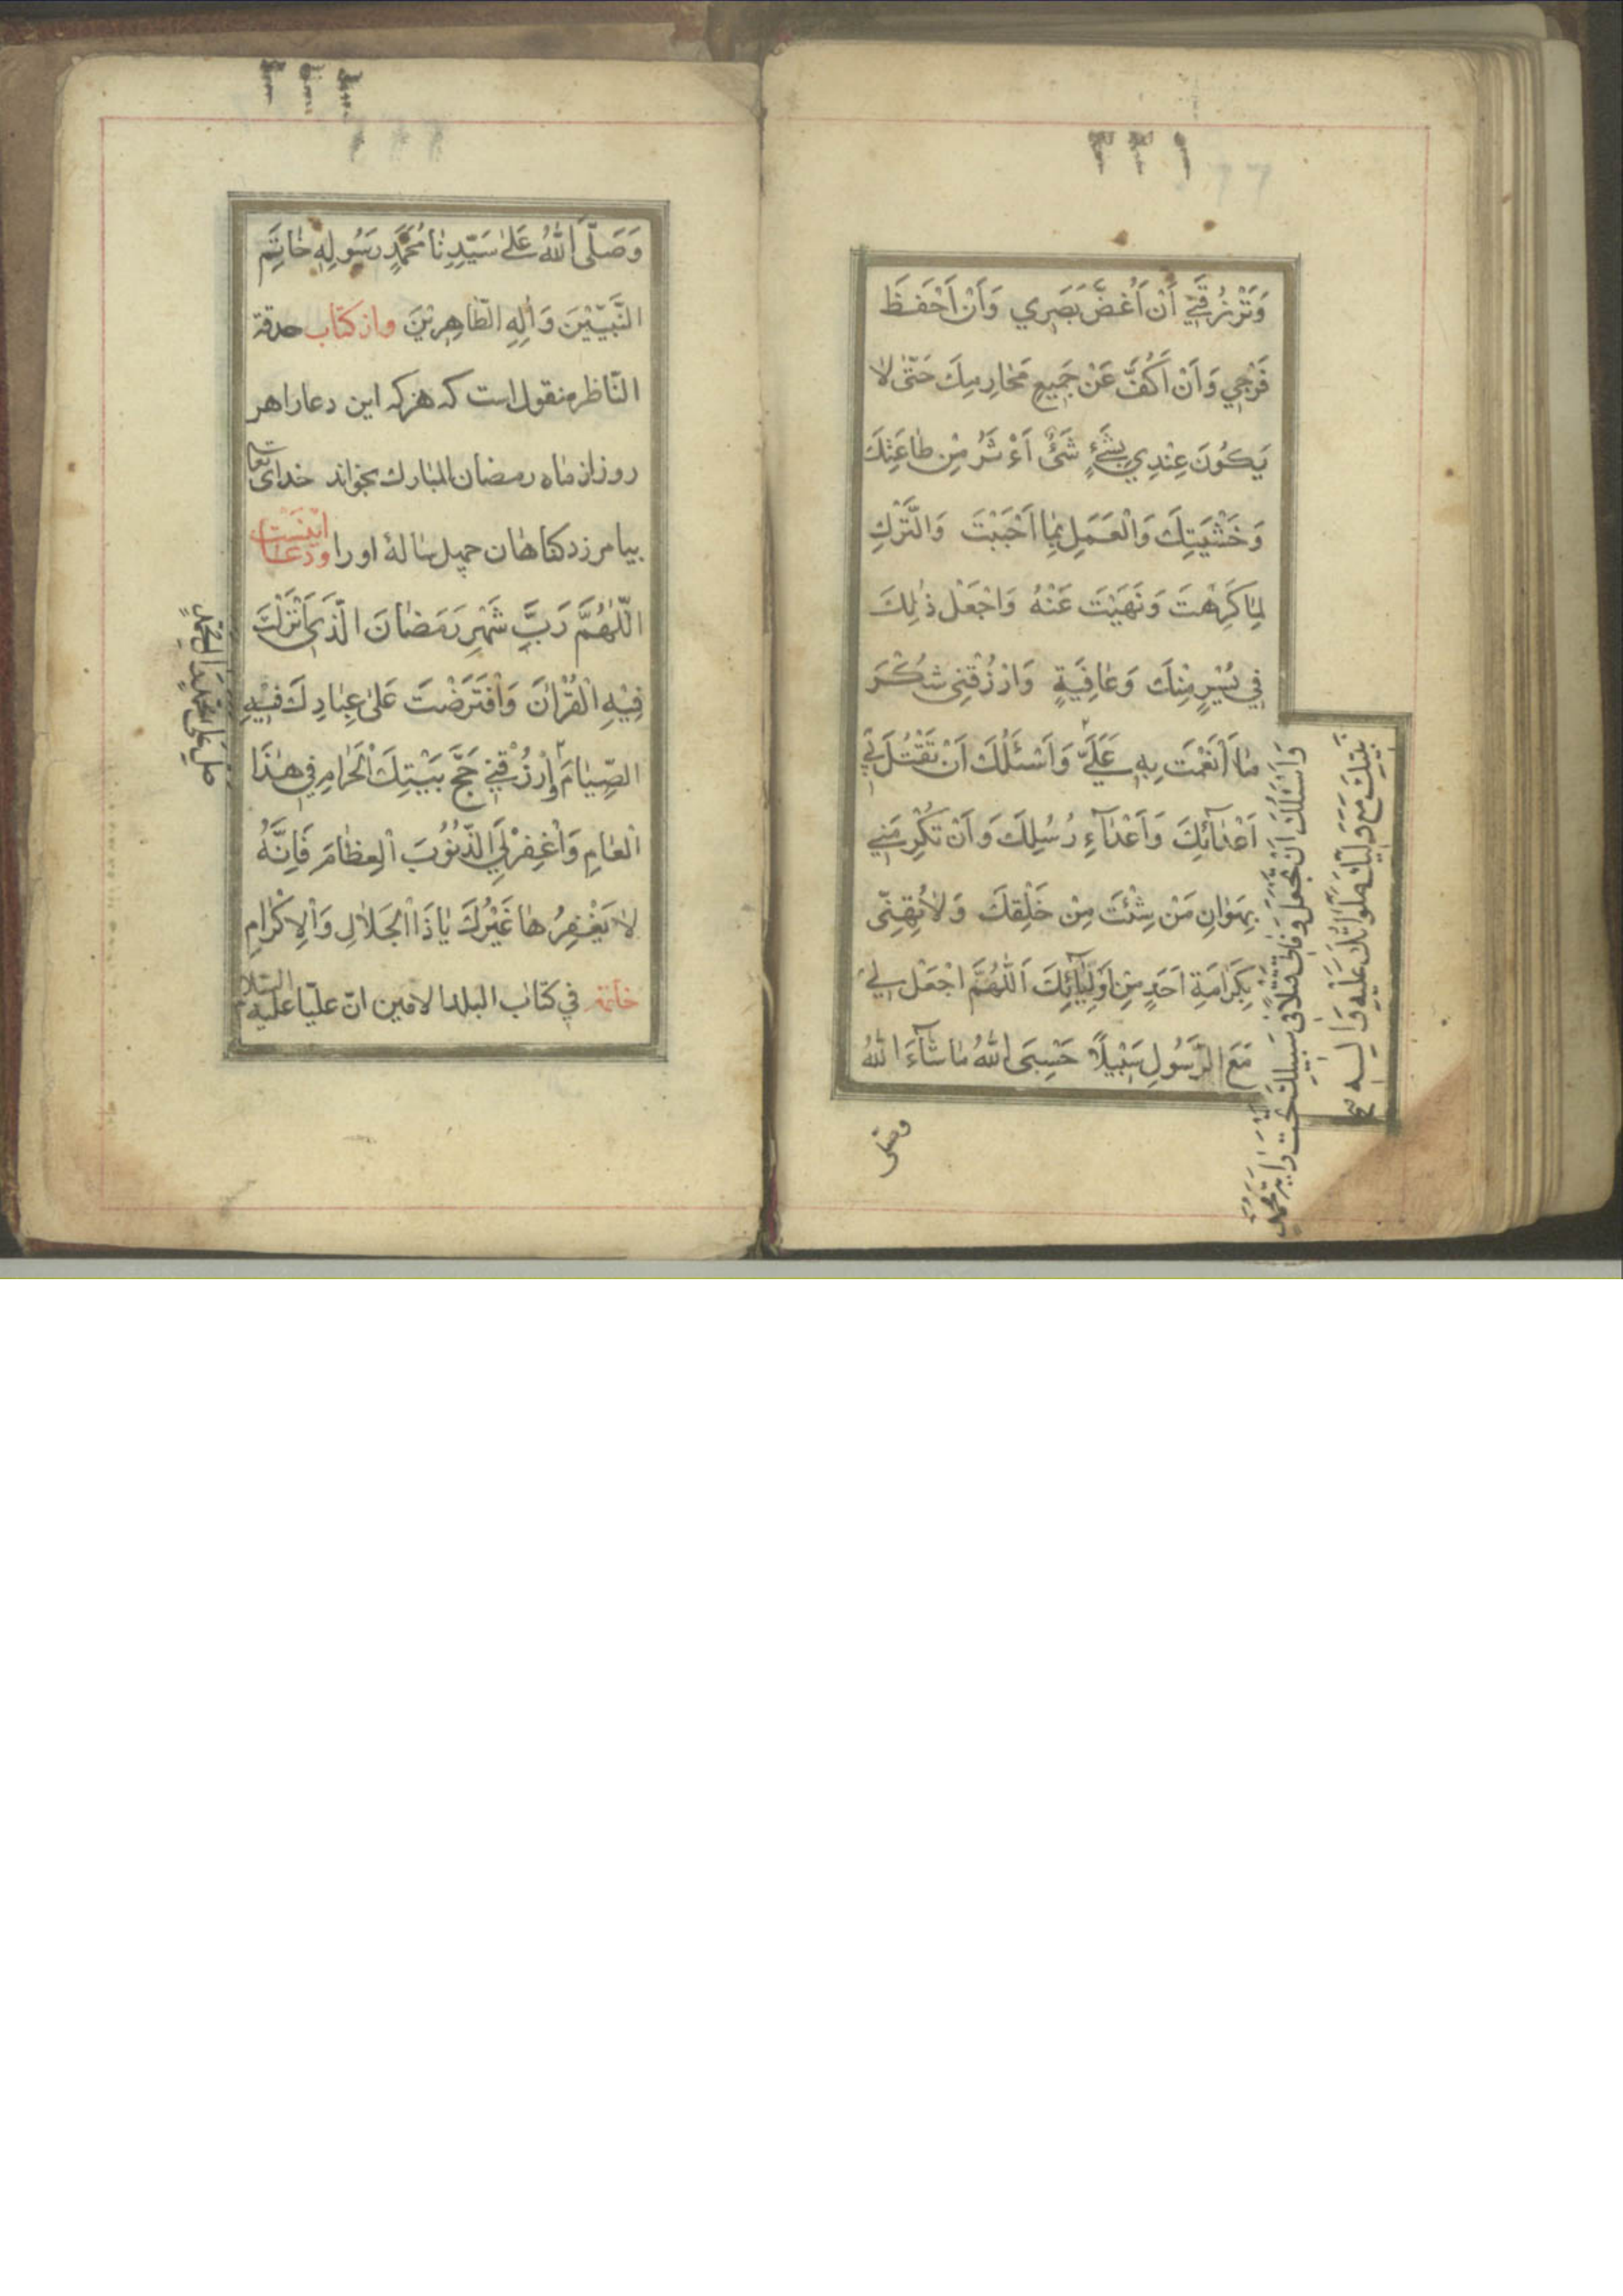 ٣٣١
وَتَرْزُقَنِي أَنْ أَغُضَّ بَصَرِي وَأَنْ أَحْفَظَ
فَرْجِي وَأَنْ أَكُفَّ عَنْ جَمِيعِ مَحَارِمِكَ حَتّىٰ لا
يَكُونَ عِنْدِي شَيْءٌ آثَرَ مِنْ طَاعَتِكَ
وَخَشْيَتِكَ وَالْعَمَلِ بِمَا أَحْبَبْتَ وَالتَّرْكِ
لِمَا كَرِهْتَ وَنَهَيْتَ عَنْهُ وَاجْعَلْ ذٰلِكَ
فِي يُسْرٍ مِنْكَ وَعَافِيَةٍ وَارْزُقْنِي شُكْرَ
مَا أَنْعَمْتَ بِهِ عَلَيَّ وَأَسْئَلُكَ أَنْ تَقْتُلَ بِي
أَعْدَائَكَ وَأَعْدَآءِ رُسُلِكَ وَأَنْ تُكْرِمَنِي
بِهَوَانِ مَنْ شِئْتَ مِنْ خَلْقِكَ وَلَا تُهِنِّي
بِكَرَامَةِ أَحَدٍ مِنْ أَوْلِيَآئِكَ اَللّٰهُمَّ اجْعَلْ لِي
مَعَ الرَّسُولِ سَبِيلًا حَسْبِيَ اللهُ مَا شَآءَ اللهُ
وَأَسْئَلُكَ أَنْ تَجْعَلَ وَفَاتِي قَتْلًا فِي سَبِيلِكَ تَحْتَ رَايَةِ مُحَمَّدٍ
نَبِيِّكَ مَعَ وَلِيِّكَ صَلَوَاتُكَ عَلَيْهِ وَالِهِ
وصلى
٣٣٢
وَصَلَّى اللهُ عَلىٰ سَيِّدِنَا مُحَمَّدٍ رَسُولِهِ خَاتَمِ
النَّبِيِّيْنَ وَآلِهِ الطَّاهِرِيْنَ واز كتاب حدقة
النّاظر منقول است كه هر كه اين دعا را هر
روز از ماه رمضان المبارك بخواند خداى تعا
بيامرزد كناهان چهل ساله او را ودعا اينست
اللّٰهُمَّ رَبَّ شَهْرِ رَمَضَانَ الَّذِي أَنْزَلْتَ
فِيْهِ الْقُرْآنَ وَافْتَرَضْتَ عَلىٰ عِبَادِكَ فِيْهِ
الصِّيَامَ وَارْزُقْنِي حَجَّ بَيْتِكَ الْحَرَامِ فِي هٰذَا
الْعَامِ وَاغْفِرْ لِيَ الذُّنُوبَ الْعِظَامَ فَإِنَّهُ
لَا يَغْفِرُهَا غَيْرُكَ يَا ذَا الْجَلَالِ وَالْإِكْرَامِ
خاتمة في كتاب البلد الامين انّ عليّا عليه السلام
صَلِّ عَلىٰ مُحَمَّدٍ وَآلِ مُحَمَّدٍ